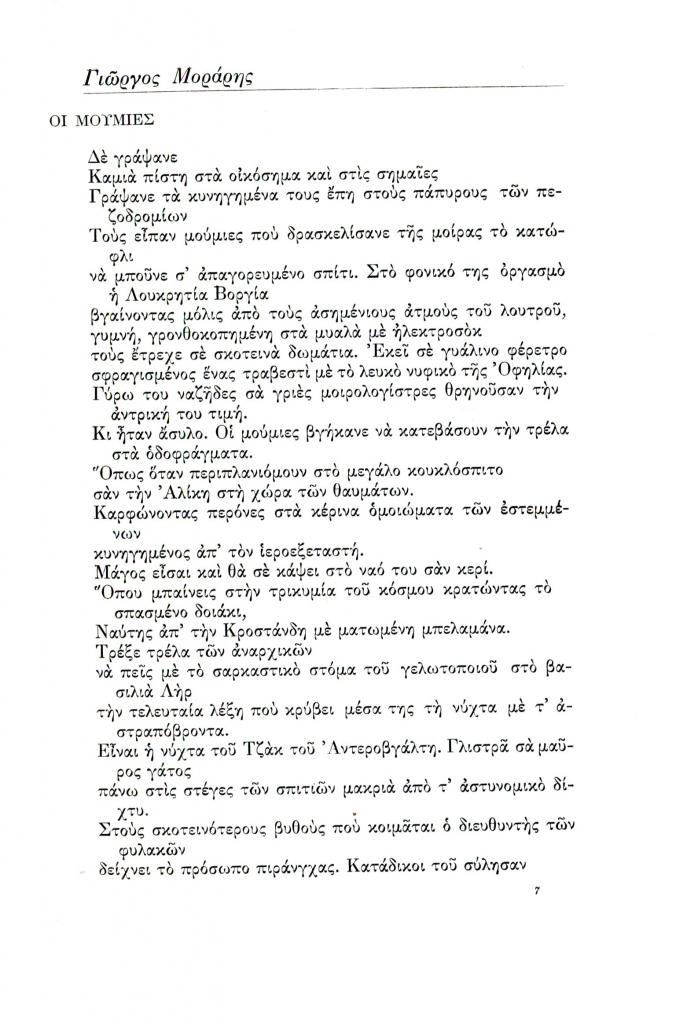 Γιῶργος Μοράρης
ΟΙ ΜΟΥΜΙΕΣ
Δὲ γράψανε
Καμιὰ πίστη στὰ οἰκόσημα καὶ στὶς σημαῖες
Γράψανε τὰ κυνηγημένα τους ἔπη στοὺς πάπυρους τῶν πε-
ζοδρομίων
Τοὺς εἶπαν μούμιες ποὺ δρασκελίσανε τῆς μοίρας τὸ κατώ-
φλι
νὰ μποῦνε σ' ἀπαγορευμένο σπίτι. Στὸ φονικό της ὀργασμὸ
ἡ Λουκρητία Βοργία
βγαίνοντας μόλις ἀπὸ τοὺς ἀσημένιους ἀτμοὺς τοῦ λουτροῦ,
γυμνή, γρονθοκοπημένη στὰ μυαλὰ μὲ ἠλεκτροσὸκ
τοὺς ἔτρεχε σὲ σκοτεινὰ δωμάτια. Ἐκεῖ σὲ γυάλινο φέρετρο
σφραγισμένος ἕνας τραβεστὶ μὲ τὸ λευκὸ νυφικὸ τῆς Ὀφηλίας.
Γύρω του ναζῆδες σὰ γριὲς μοιρολογίστρες θρηνοῦσαν τὴν
ἀντρική του τιμή.
Κι ἦταν ἄσυλο. Οἱ μούμιες βγήκανε νὰ κατεβάσουν τὴν τρέλα
στὰ ὁδοφράγματα.
Ὅπως ὅταν περιπλανιόμουν στὸ μεγάλο κουκλόσπιτο
σὰν τὴν Ἀλίκη στὴ χώρα τῶν θαυμάτων.
Καρφώνοντας περόνες στὰ κέρινα ὁμοιώματα τῶν ἐστεμμέ-
νων
κυνηγημένος ἀπ' τὸν ἱεροεξεταστή.
Μάγος εἶσαι καὶ θὰ σὲ κάψει στὸ ναό του σὰν κερί.
Ὅπου μπαίνεις στὴν τρικυμία τοῦ κόσμου κρατώντας τὸ
σπασμένο δοιάκι,
Ναύτης ἀπ' τὴν Κροστάνδη μὲ ματωμένη μπελαμάνα.
Τρέξε τρέλα τῶν ἀναρχικῶν
νὰ πεῖς μὲ τὸ σαρκαστικὸ στόμα τοῦ γελωτοποιοῦ στὸ βα-
σιλιὰ Λὴρ
τὴν τελευταία λέξη ποὺ κρύβει μέσα της τὴ νύχτα μὲ τ' ἀ-
στραπόβροντα.
Εἶναι ἡ νύχτα τοῦ Τζὰκ τοῦ Ἀντεροβγάλτη. Γλιστρᾶ σὰ μαῦ-
ρος γάτος
πάνω στὶς στέγες τῶν σπιτιῶν μακριὰ ἀπὸ τ' ἀστυνομικὸ δί-
χτυ.
Στοὺς σκοτεινότερους βυθοὺς ποὺ κοιμᾶται ὁ διευθυντὴς τῶν
φυλακῶν
δείχνει τὸ πρόσωπο πιράνγχας. Κατάδικοι τοῦ σύλησαν
7